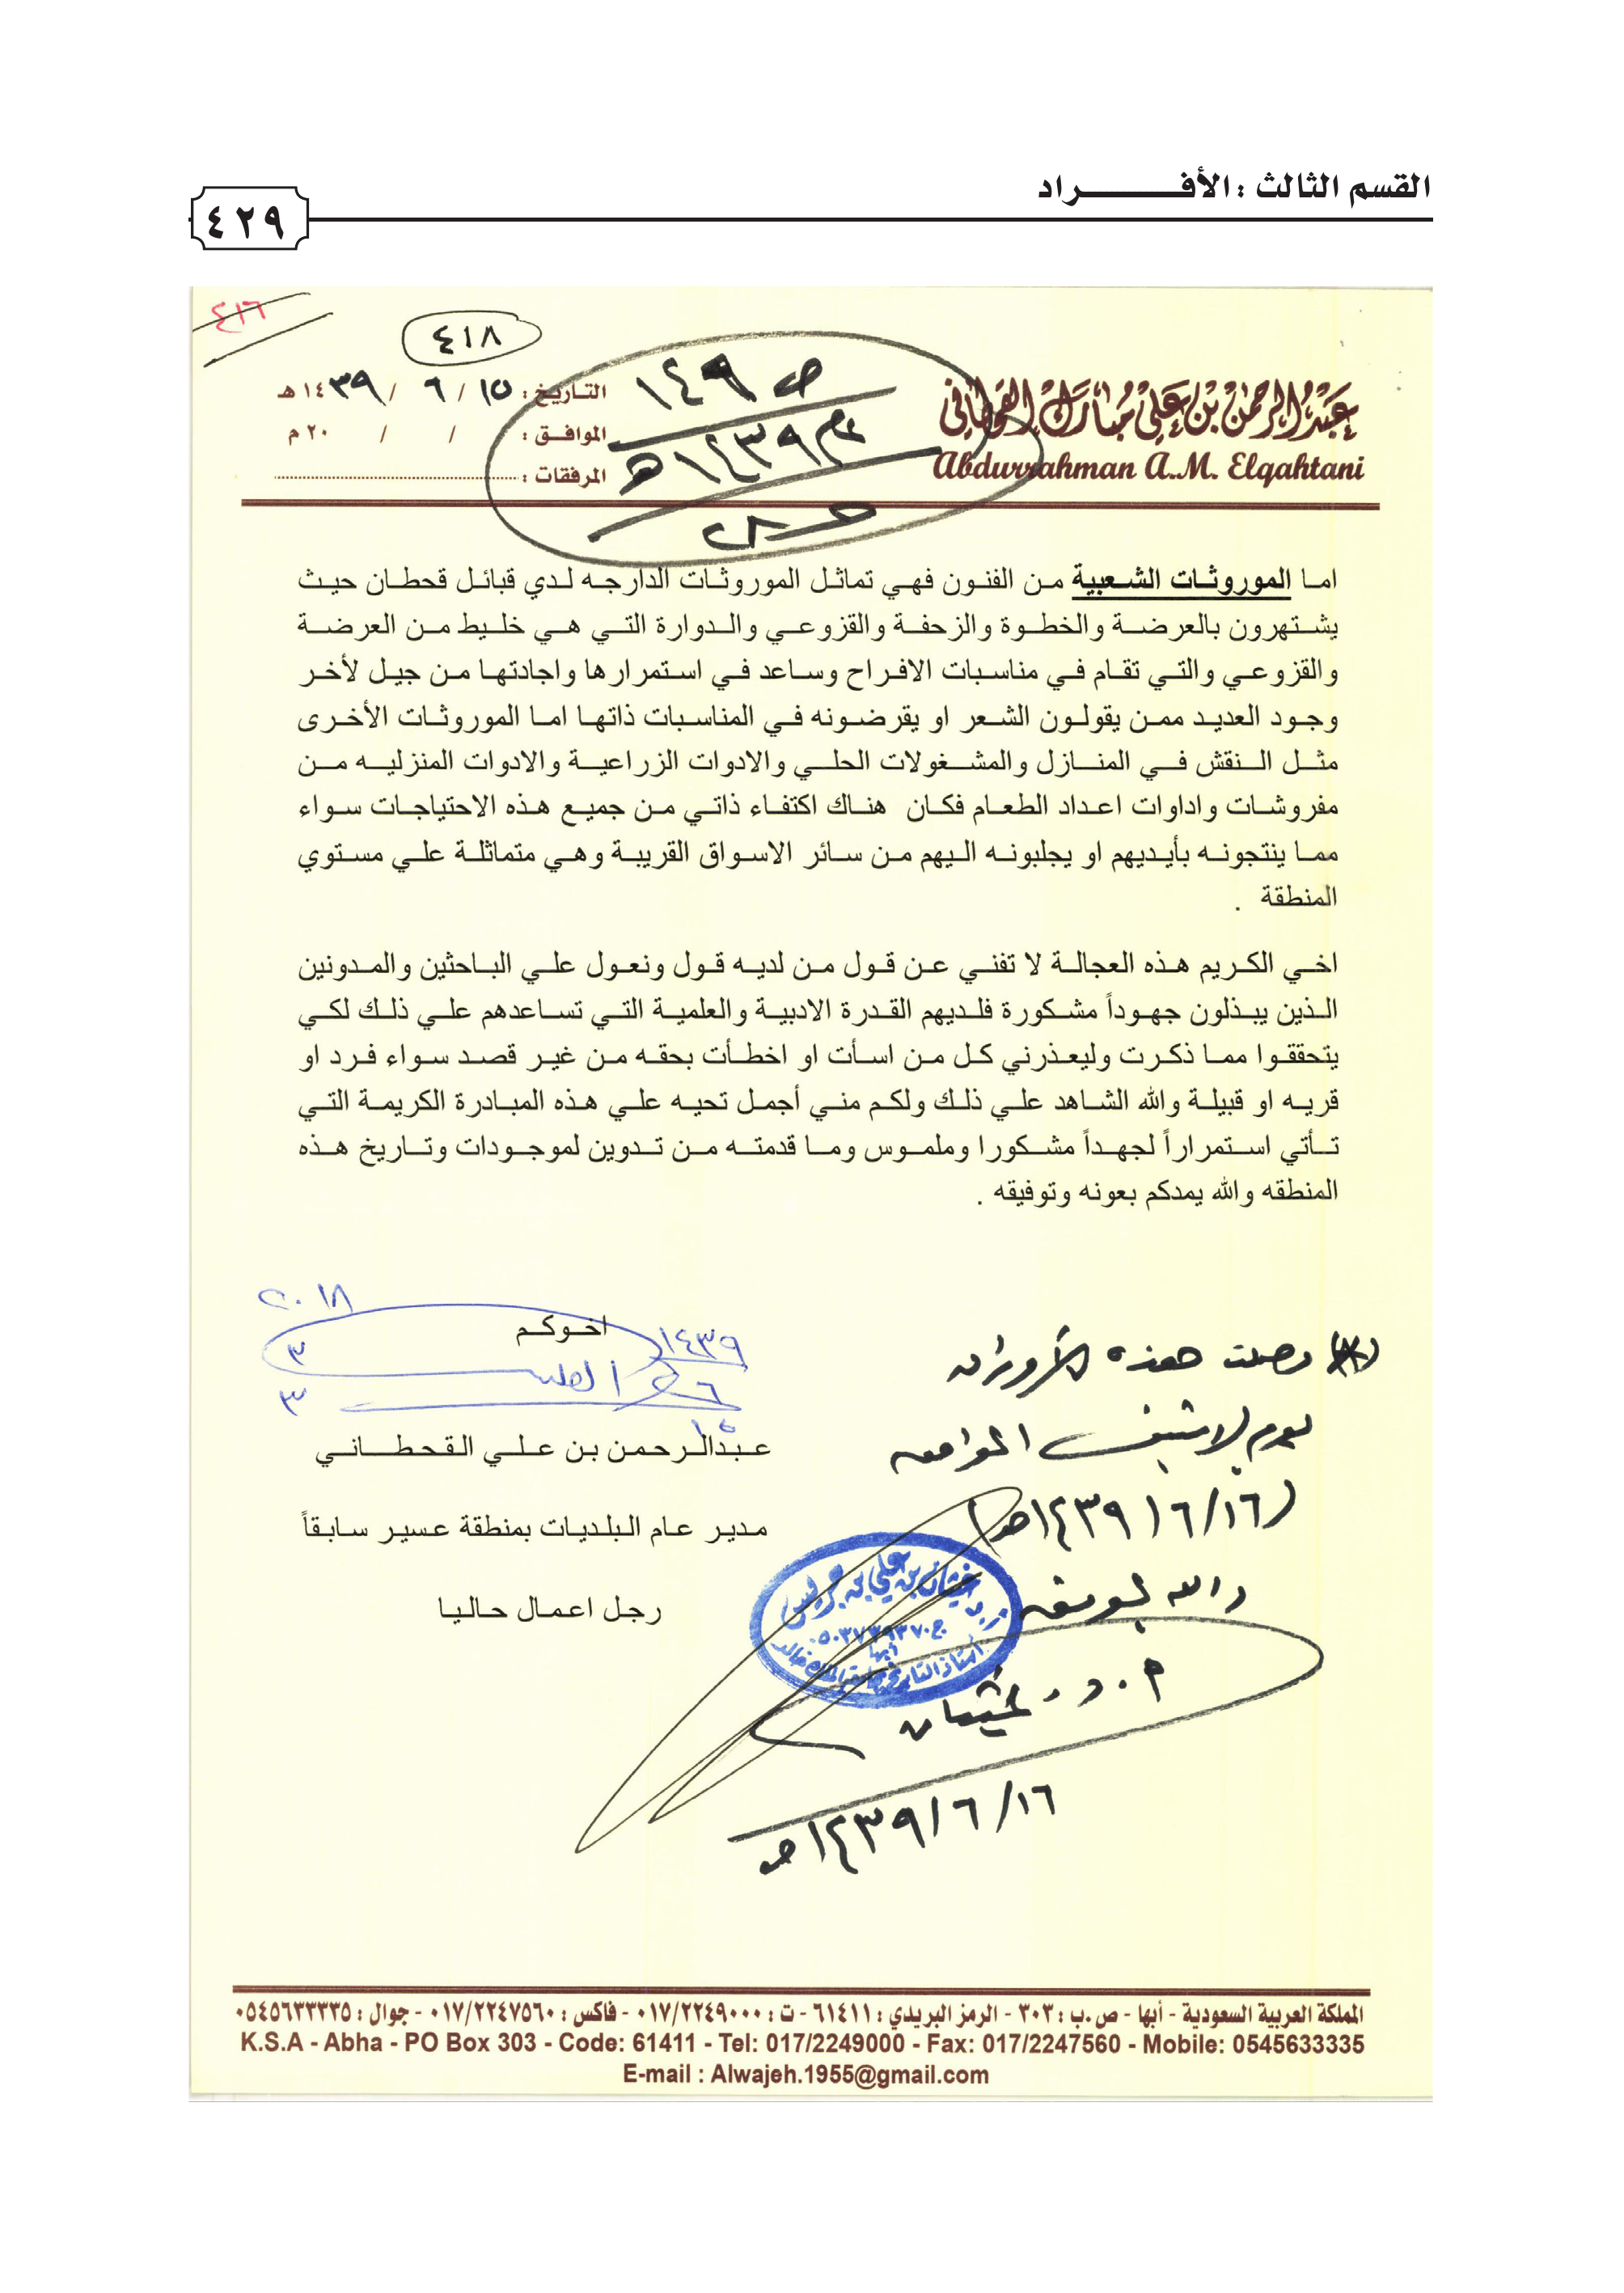 القسم الثالث : الأفـــــــــراد
٤٢٩
٤١٦
٤١٨
ص ١٤٩
عام ١٤٣٩هـ
عبد الرحمن بن علي مبارك القحطاني
Abdurrahman A.M. Elqahtani
التاريخ : ١٥ / ٦ / ١٤٣٩هـ
الموافق : / / ٢٠م
المرفقات :
اما الموروثات الشعبية من الفنون فهي تماثل الموروثات الدارجه لدي قبائل قحطان حيث
يشتهرون بالعرضة والخطوة والزحفة والقزوعي والدوارة التي هي خليط من العرضة
والقزوعي والتي تقام في مناسبات الافراح وساعد في استمرارها واجادتها من جيل لأخر
وجود العديد ممن يقولون الشعر او يقرضونه في المناسبات ذاتها اما الموروثات الأخرى
مثل النقش في المنازل والمشغولات الحلي والادوات الزراعية والادوات المنزليه من
مفروشات واداوات اعداد الطعام فكان هناك اكتفاء ذاتي من جميع هذه الاحتياجات سواء
مما ينتجونه بأيديهم او يجلبونه اليهم من سائر الاسواق القريبة وهي متماثلة علي مستوي
المنطقة .
اخي الكريم هذه العجالة لا تفني عن قول من لديه قول ونعول علي الباحثين والمدونين
الذين يبذلون جهوداً مشكورة فلديهم القدرة الادبية والعلمية التي تساعدهم علي ذلك لكي
يتحققوا مما ذكرت وليعذرني كل من اسأت او اخطأت بحقه من غير قصد سواء فرد او
قريه او قبيلة والله الشاهد علي ذلك ولكم مني أجمل تحيه علي هذه المبادرة الكريمة التي
تأتي استمراراً لجهداً مشكورا وملموس وما قدمته من تدوين لموجودات وتاريخ هذه
المنطقه والله يمدكم بعونه وتوفيقه .
اخوكم
٢٠١٨
٣
٣
١٤٣٩
٦
عبدالرحمن بن علي القحطاني
مدير عام البلديات بمنطقة عسير سابقاً
رجل اعمال حاليا
(*) وصلت هذه الأوراق
يوم الاثنين الموافق
(١٤٣٩/٦/١٦هـ)
والله الموفق
أ.د. غيثان
١٤٣٩/٦/١٦هـ
أ.د. غيثان بن علي بن جريس
ج.٠٥٠٣٧٣٩٣٧٠
أبها
أستاذ التاريخ بجامعة الملك خالد
المملكة العربية السعودية - أبها - ص.ب : ٣٠٣ - الرمز البريدي : ٦١٤١١ - ت : ٠١٧/٢٢٤٩٠٠٠ - فاكس : ٠١٧/٢٢٤٧٥٦٠ - جوال : ٠٥٤٥٦٣٣٣٣٥
K.S.A - Abha - PO Box 303 - Code: 61411 - Tel: 017/2249000 - Fax: 017/2247560 - Mobile: 0545633335
E-mail : Alwajeh.1955@gmail.com